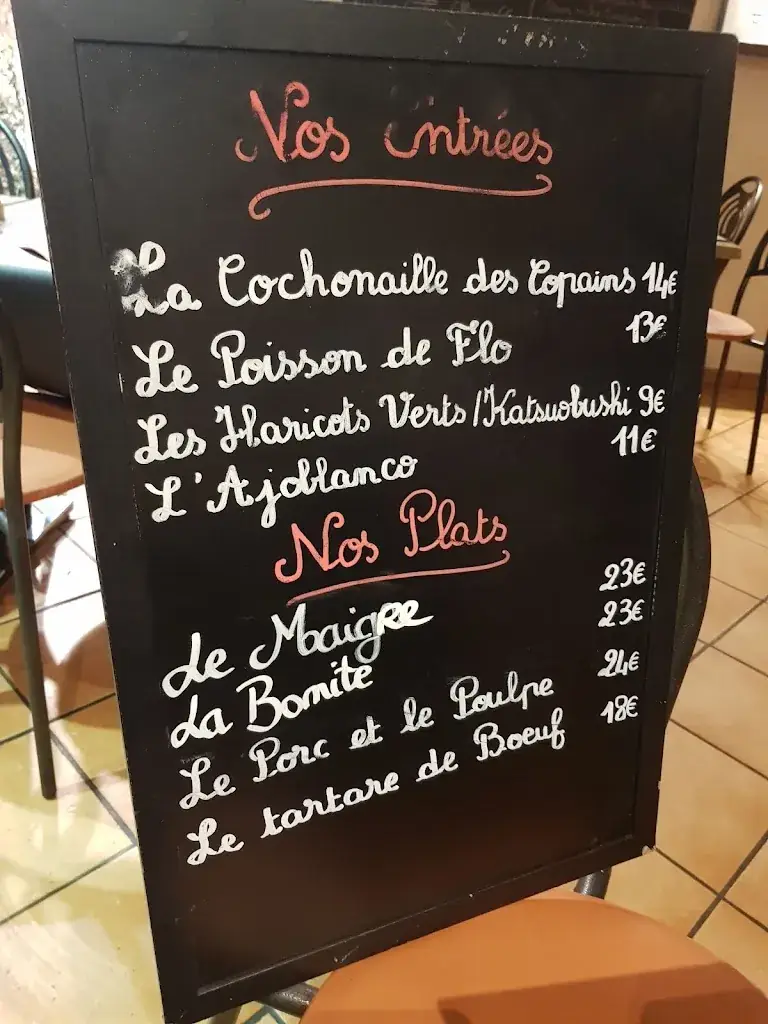 Nos Entrées
La Cochonaille des Copains 14€
Le Poisson de Flo 13€
Les Haricots Verts/Katsuobushi 9€
L'Ajoblanco 11€
Nos Plats
Le Maigre 23€
La Bonite 23€
Le Porc et le Poulpe 24€
Le tartare de Boeuf 18€